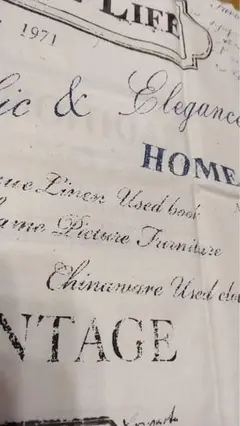 LIFE
1971
ic & Elegance
HOME
ue Linen Used book
ame Picture Furniture
Chinaware Used clo
NTAGE